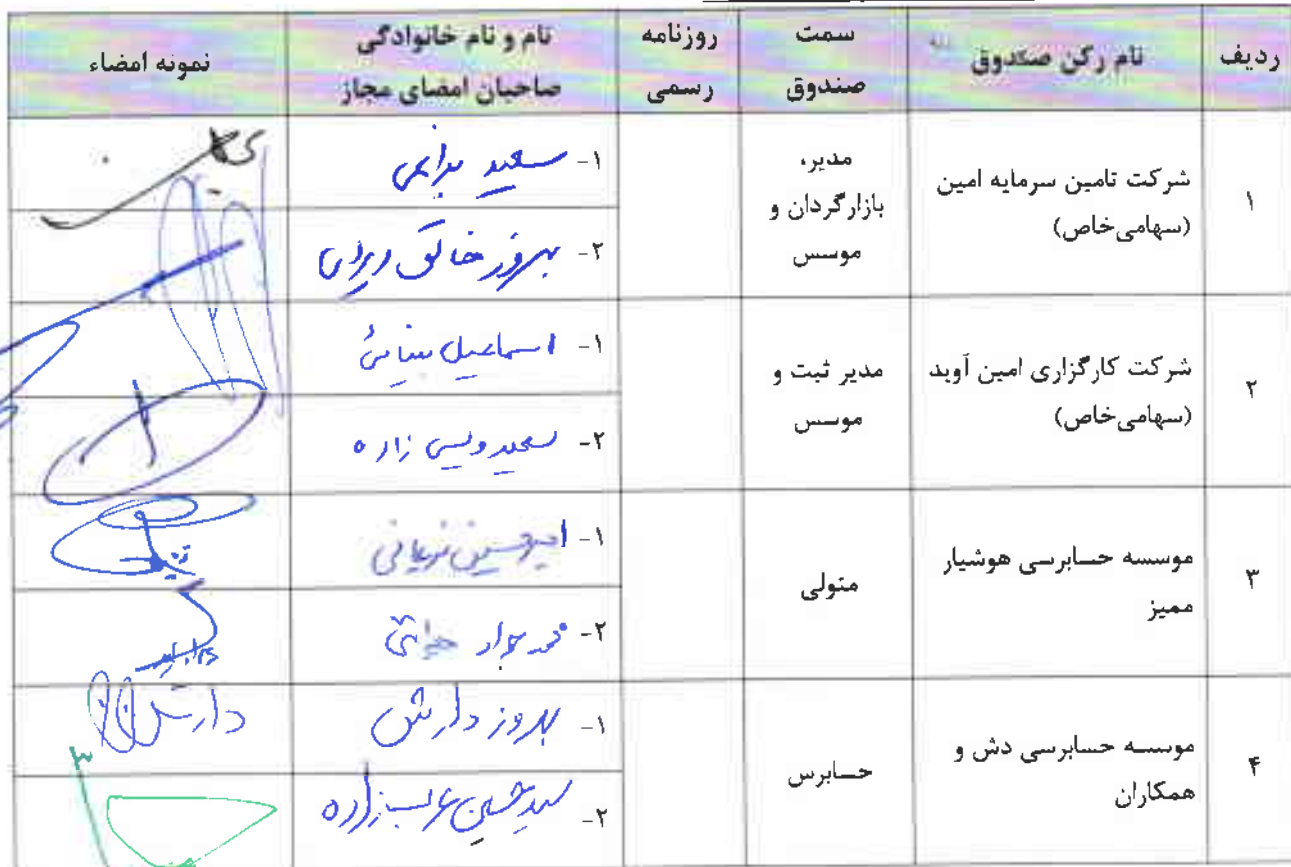 ردیف
نام رکن صندوق
سمت
صندوق
روزنامه
رسمی
نام و نام خانوادگی
صاحبان امضای مجاز
نمونه امضاء
۱
شرکت تامین سرمایه امین
(سهامی‌خاص)
مدیر،
بازارگردان و
موسس
۱-
سعید
۲-
بهروز
۲
شرکت کارگزاری امین آوید
(سهامی‌خاص)
مدیر ثبت و
موسس
۱- اسماعیل
۲- سعید ویسی زاده
۳
موسسه حسابرسی هوشیار
ممیز
متولی
۱- امیرحسین نریمانی
۲- محمد جواد
۴
موسسه حسابرسی دش و
همکاران
حسابرس
۱- بهروز دارش
دارش
۲- سید حسین عرب زاده